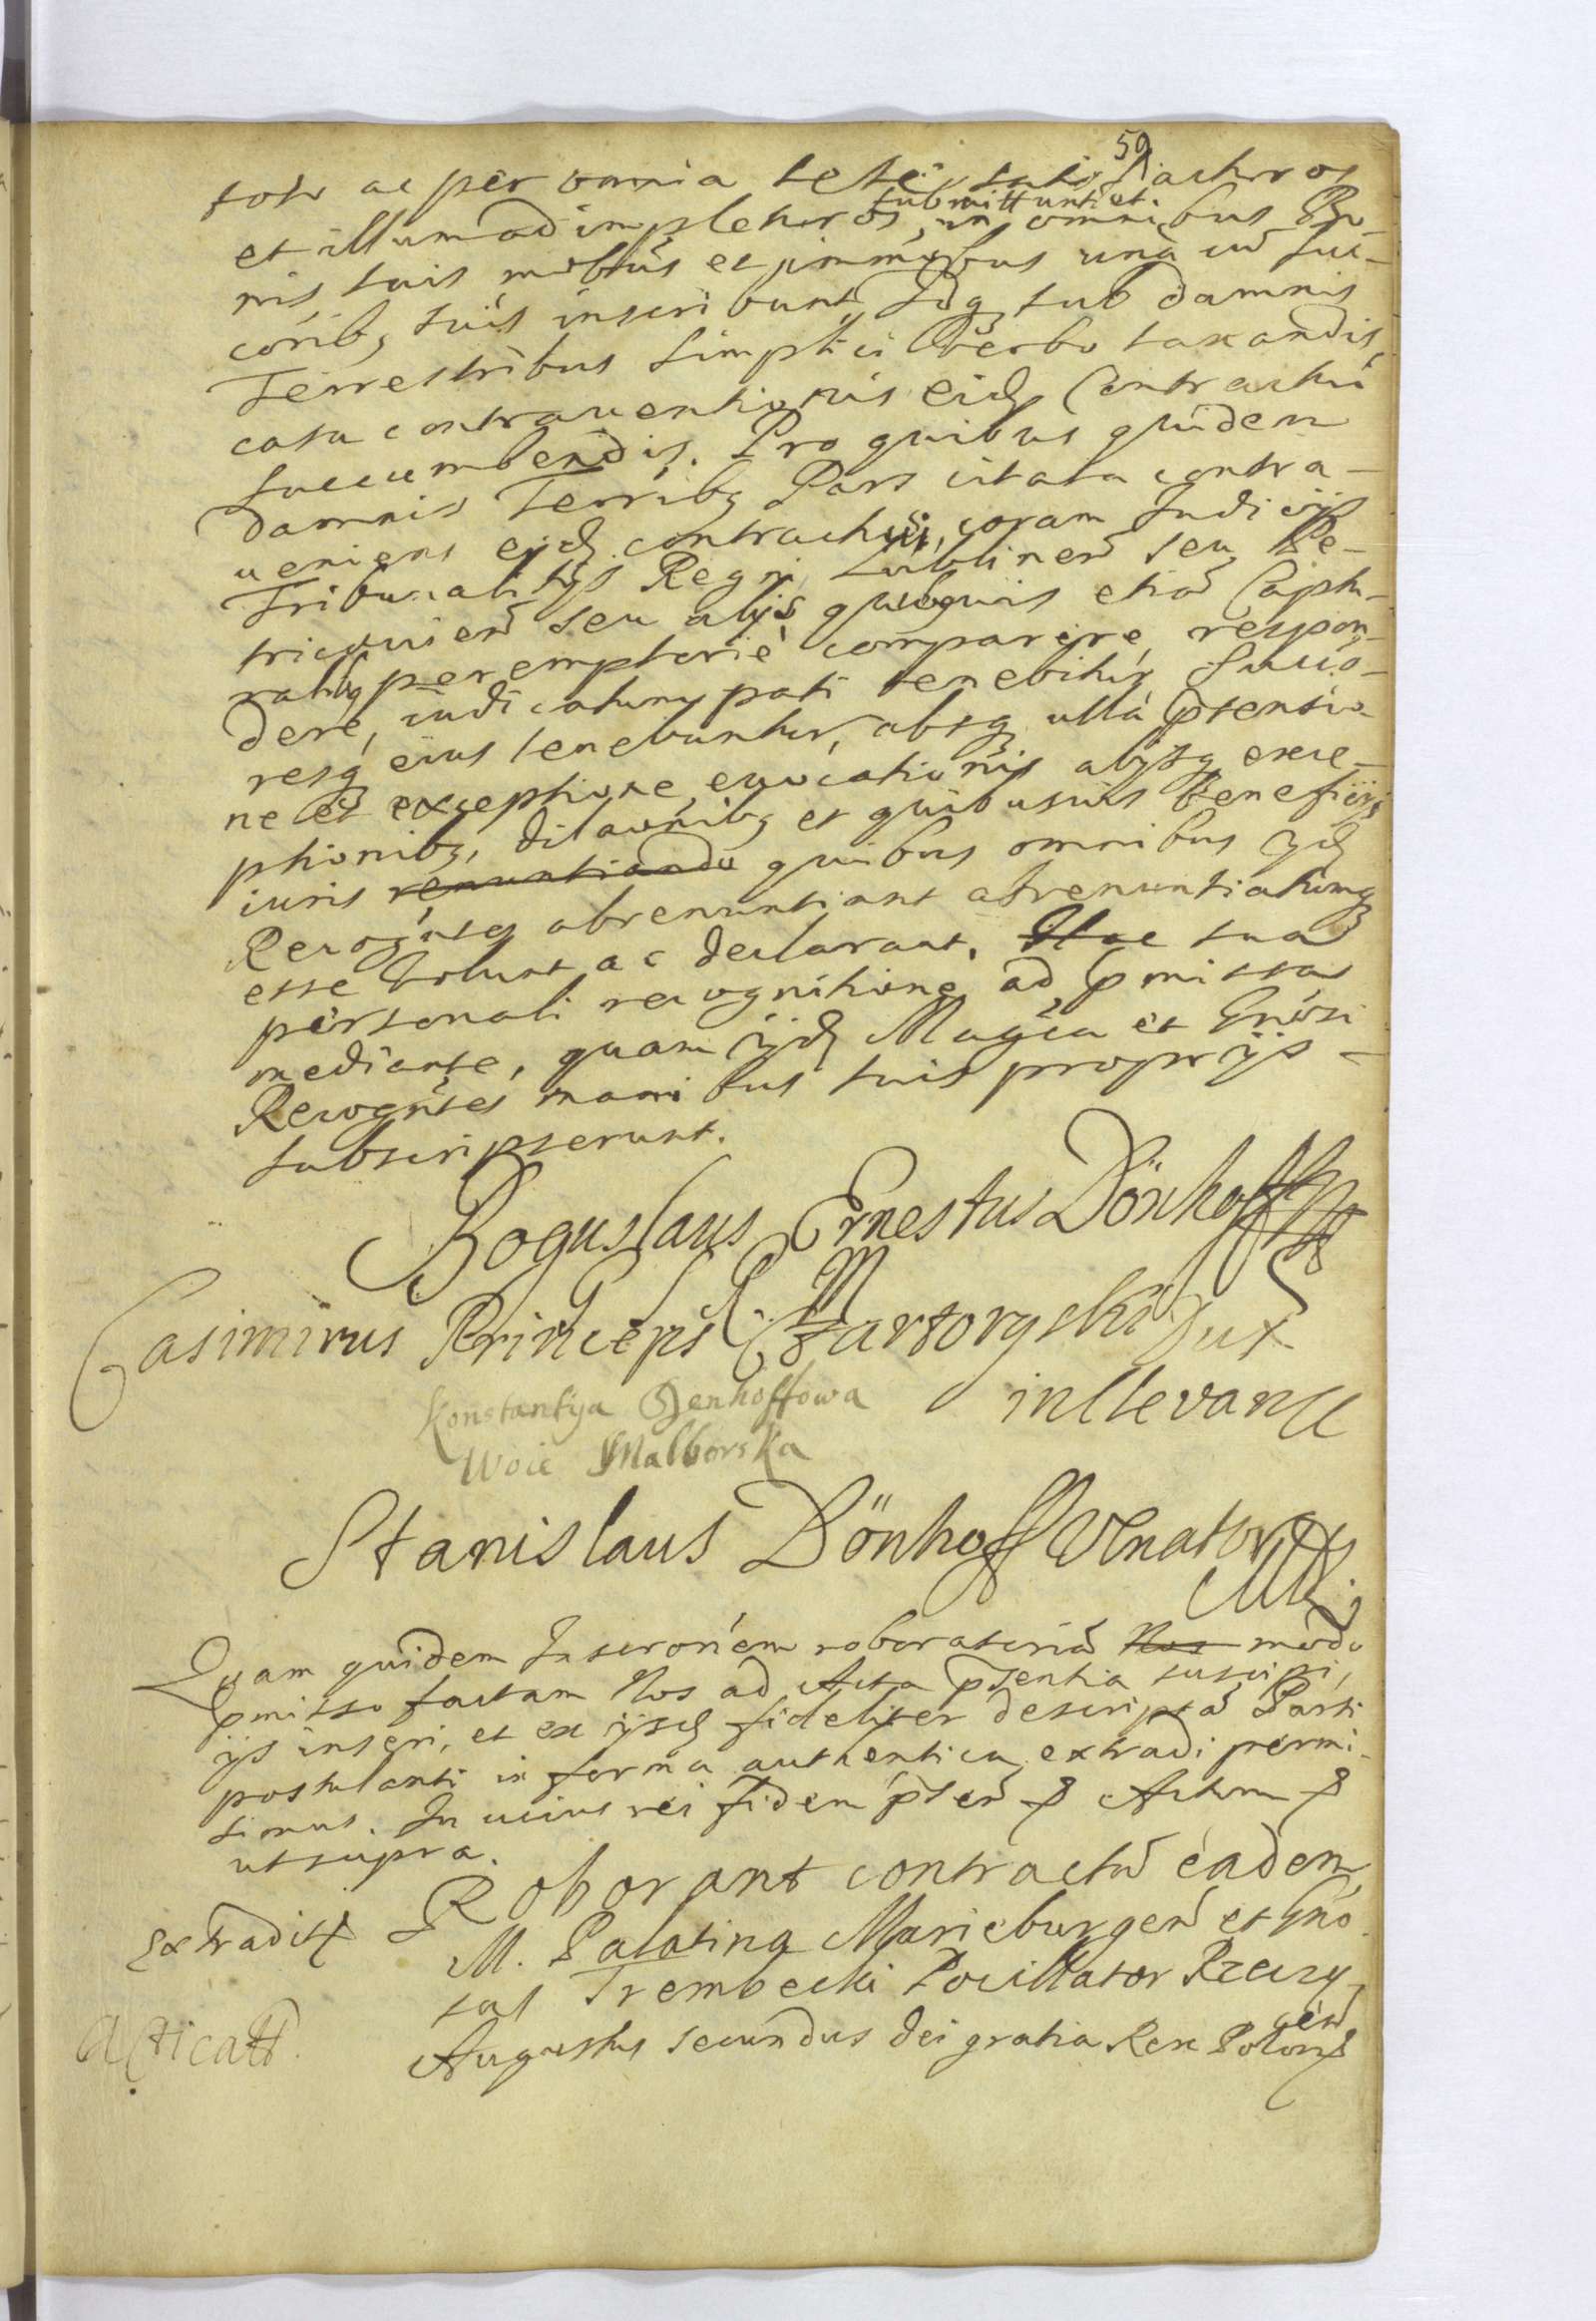 59
toto ac per omnia sese satis facturos
et illum adimpleturos submittunt et in omnibus Bo-
nis suis mobľus et immobus unà cū suc-
corib9 suis inscribunt, Idq3 sub damnis
Terrestribus simplici Verbo taxandis,
casu contraventionis eid3 Contractui
succumbendis. Pro quibus quidem
damnis Terrib9 Pars citata contra-
ueniens eid3 contractui, coram Judicijs
Tribunalitijs Regni Lublinen̄ seu Pe-
tricouien̄ seu alijs quibusuis etiā Captu-
ralib9 peremptorie comparere, respon-
dere, iudicatumq3 pati tenebitur, Succo-
resq3 eius tenebuntur, absq3 ullà p̄tensio-
ne et exceptione, euocationis alijsq3 exce-
ptionib9, dilaōnib9 et quibusuis beneficijs
iuris renuntiando quibus omnibus ijd3
Recogn̄tes abrenuntiant abrenuntiatumq3
esse volunt ac declarant. Hac sua
personali recognitione ad p̄missa
mediante, quam ijd3 Magci et Gn̄osi
Recogn̄tes manibus suis proprijs
subscripserunt.
Boguslaus Ernestus Dönhoff
Casimirus Princeps Czartoryski Dux
in Clevan
Konstantya Denhoffowa
Woie Malborska
Stanislaus Dönhoff Venator
MDL.
Quam quidem Inscron̄em roboratoriā Nos modo
p̄misso factam Nos ad Acta p̄sentia suscipi,
ijs inseri, et ex ijsd3 fideliter descriptā Parti
postulanti in forma authentica extradi permi-
simus. In cuius rei fidem p̄sen̄ Actum
ut supra.
Extradit
Roborant contractū eadem
M. Palatina Marieburgen̄ et Gn̄o
sus Trembecki Pocillator Rzeczy
cen̄
acticatt.
Augustus secundus dei gratia Rex Polon